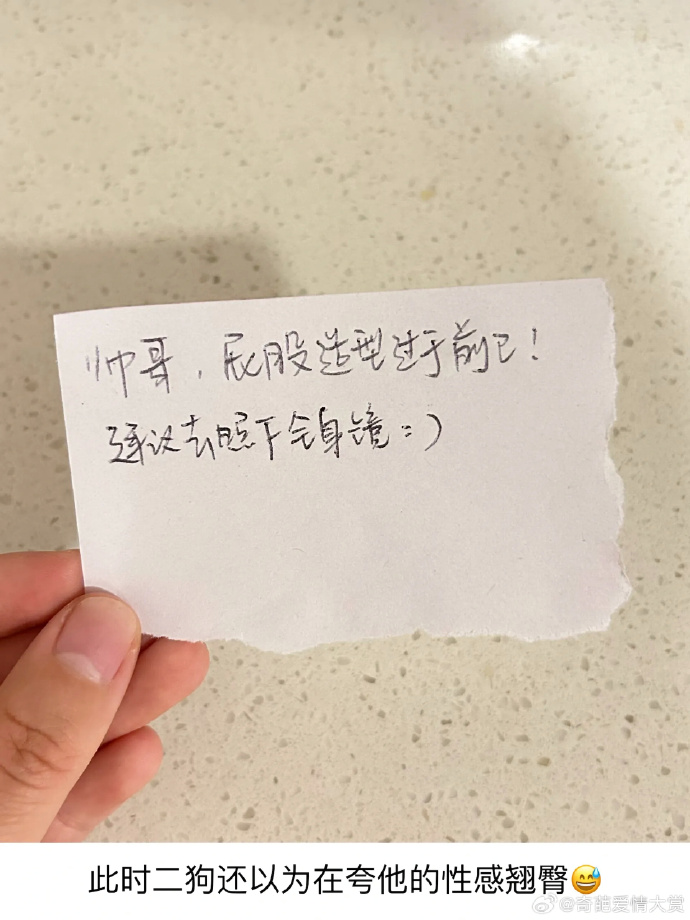 帅哥，屁股造型过于前卫！
建议去照下全身镜=)
此时二狗还以为在夸他的性感翘臀😅
@奇葩爱情大赏